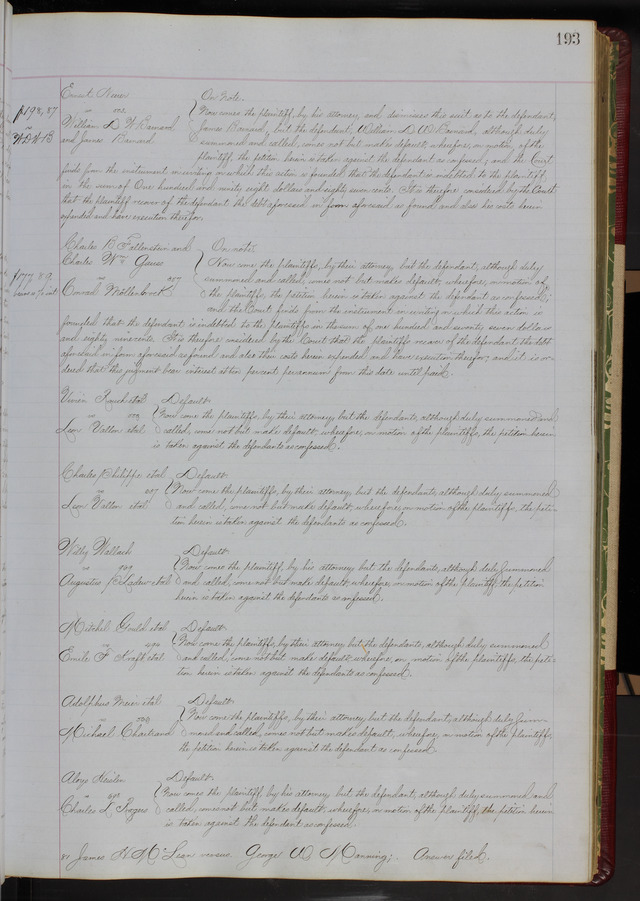 193
Ernst
$198.87
On Note.
William D. W. Barnard
and James Barnard
W.D.W.B
Now comes the plaintiff, by his attorney, and dismisses this suit as to the defendant,
James Barnard, but the defendant, William D. W. Barnard, although duly
summoned and called, comes not but makes default; wherefore, on motion of the
plaintiff, the petition herein is taken against the defendant as confessed; and the Court
finds from the instrument in writing on which this action is founded, that the defendant is indebted to the plaintiff
in the sum of One hundred and ninety eight dollars and eighty seven cents. It is therefore considered by the Court
that the plaintiff recover of the defendant the debt aforesaid in form aforesaid as found and also his costs herein
expended and have execution therefor.
Charles B. Fallenstein and
Charles Wm. Gauss
On note.
$177.89.
Conrad Mollenbrock
Now come the plaintiffs, by their attorney, but the defendant, although duly
summoned and called, comes not but makes default; wherefore, on motion of
the plaintiffs, the petition herein is taken against the defendant as confessed;
and the Court finds from the instrument in writing on which this action is
founded that the defendant is indebted to the plaintiffs in the sum of one hundred and seventy seven dollars
and eighty nine cents. It is therefore considered by the Court that the plaintiffs recover of the defendant the debt
aforesaid in form aforesaid as found and also their costs herein expended and have execution therefor; and it is or-
dered that this judgment bear interest at ten percent per annum from this date until paid.
et al Default.
Leon Vallon et al
Now come the plaintiffs, by their attorney but the defendants, although duly summoned and
called, come not but make default; wherefore, on motion of the plaintiffs, the petition herein
is taken against the defendants as confessed.
Charles Philippe et al Default.
Leon Vallon et al
Now come the plaintiffs, by their attorney, but the defendants, although duly summoned
and called, come not but make default; wherefore, on motion of the plaintiffs, the peti-
tion herein is taken against the defendants as confessed.
Willy Wallach Default.
Augustus Ladew et al
Now comes the plaintiff, by his attorney but the defendants, although duly summoned
and called, come not but make default; wherefore, on motion of the plaintiff, the petition
herein is taken against the defendants as confessed.
Mitchel Gould et al Default.
Emile F. Kraft et al
Now come the plaintiffs, by their attorney but the defendants, although duly summoned
and called, come not but make default; wherefore, on motion of the plaintiffs, the peti-
tion herein is taken against the defendants as confessed.
Adolphus Meier et al Default.
Michael Chartrand
Now come the plaintiffs, by their attorney, but the defendant, although duly sum-
moned and called, comes not but makes default; wherefore, on motion of the plaintiffs,
the petition herein is taken against the defendant as confessed.
Aloys Default.
Charles L. Rogers
Now comes the plaintiff, by his attorney but the defendant, although duly summoned and
called, comes not but makes default; wherefore, on motion of the plaintiff, the petition herein
is taken against the defendant as confessed.
James H. McLean versus George W. Manning; Answer filed.